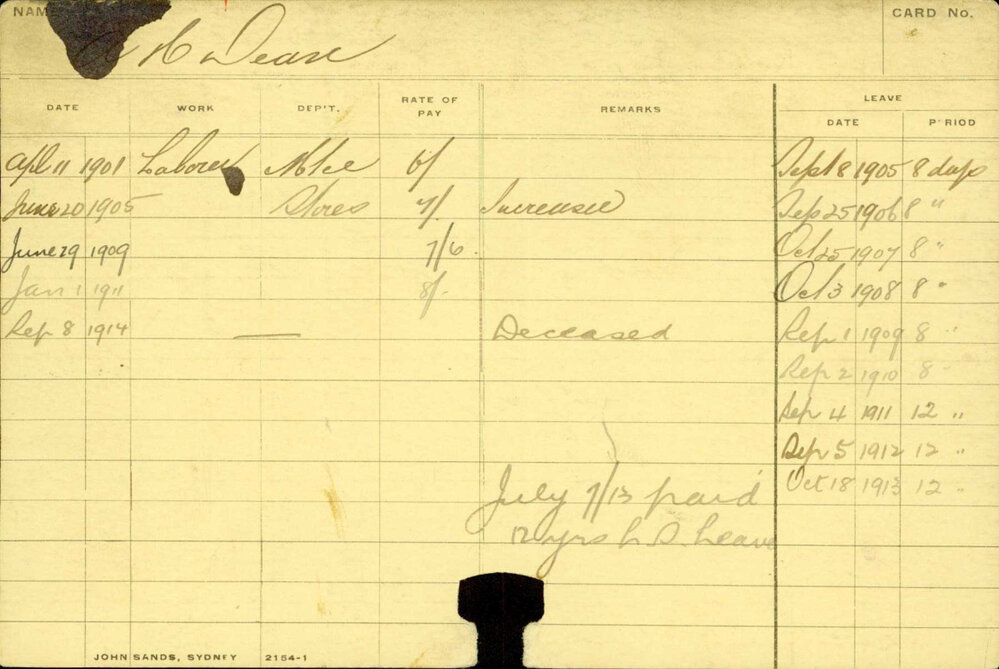 NAME H Deane CARD No.
DATE WORK DEP'T. RATE OF PAY REMARKS LEAVE
DATE PERIOD
Apl 11 1901 Laborer 6/ Sept 8 1905 8 days
June 20 1905 Stores 7/ Increased Sep 25 1906 8 "
June 29 1909 7/6 Oct 25 1907 8 "
Jan 1 1911 8/- Oct 3 1908 8 "
Sep 8 1914 — Deceased Sep 1 1909 8 "
Sep 2 1910 8 "
Sep 4 1911 12 "
Sep 5 1912 12 "
Oct 18 1913 12 "
July 7/13 paid
12 yrs L.S. Leave
JOHN SANDS, SYDNEY 2154-1